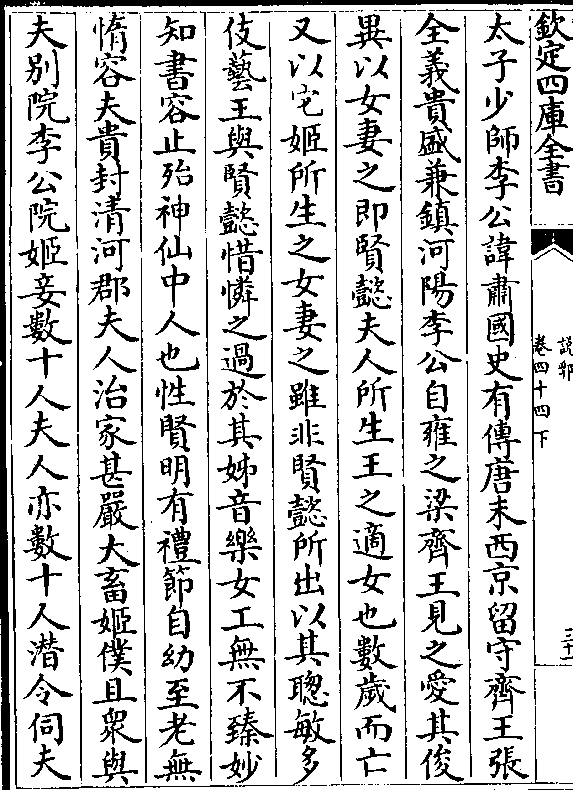 欽定四庫全書
説郛
卷四十四下
三十一
太子少師李公諱肅國史有傳唐末西京留守齊王張
全義貴盛兼鎮河陽李公自雍之梁齊王見之愛其俊
異以女妻之即賢懿夫人所生王之適女也數歲而亡
又以宅姬所生之女妻之雖非賢懿所出以其聰敏多
伎藝王與賢懿惜憐之過於其姊音樂女工無不臻妙
知書容止殆神仙中人也性賢明有禮節自幼至老無
惰容夫貴封清河郡夫人治家甚嚴大畜姬僕且衆與
夫别院李公院姬妾數十人夫人亦數十人潜令伺夫